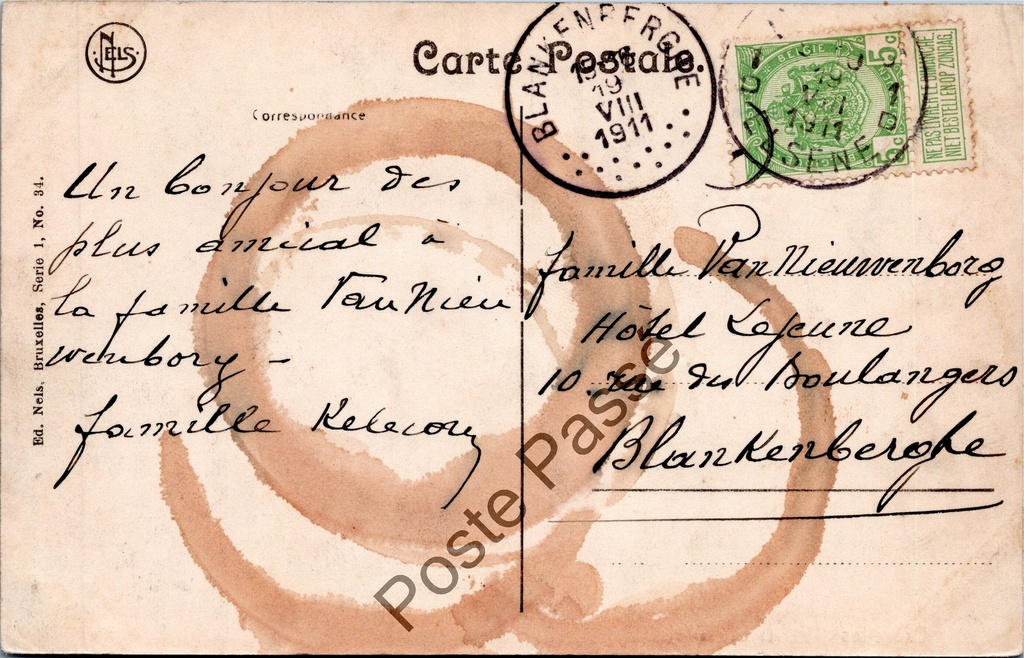 NELS
Carte Postale
Correspondance
BLANKENBERGHE
19
VIII
1911
BELGIE
5c
1911
NE PAS LIVRER LE DIMANCHE.
NIET BESTELLEN OP ZONDAG.
Ed. Nels, Bruxelles, Serie 1, No. 34.
Un bonjour des
plus amical à
la famille Van Nieu
wenborg –
famille
famille Van Nieuwenborg
Hôtel Lejeune
10 rue des Boulangers
Blankenberghe
Poste Passe